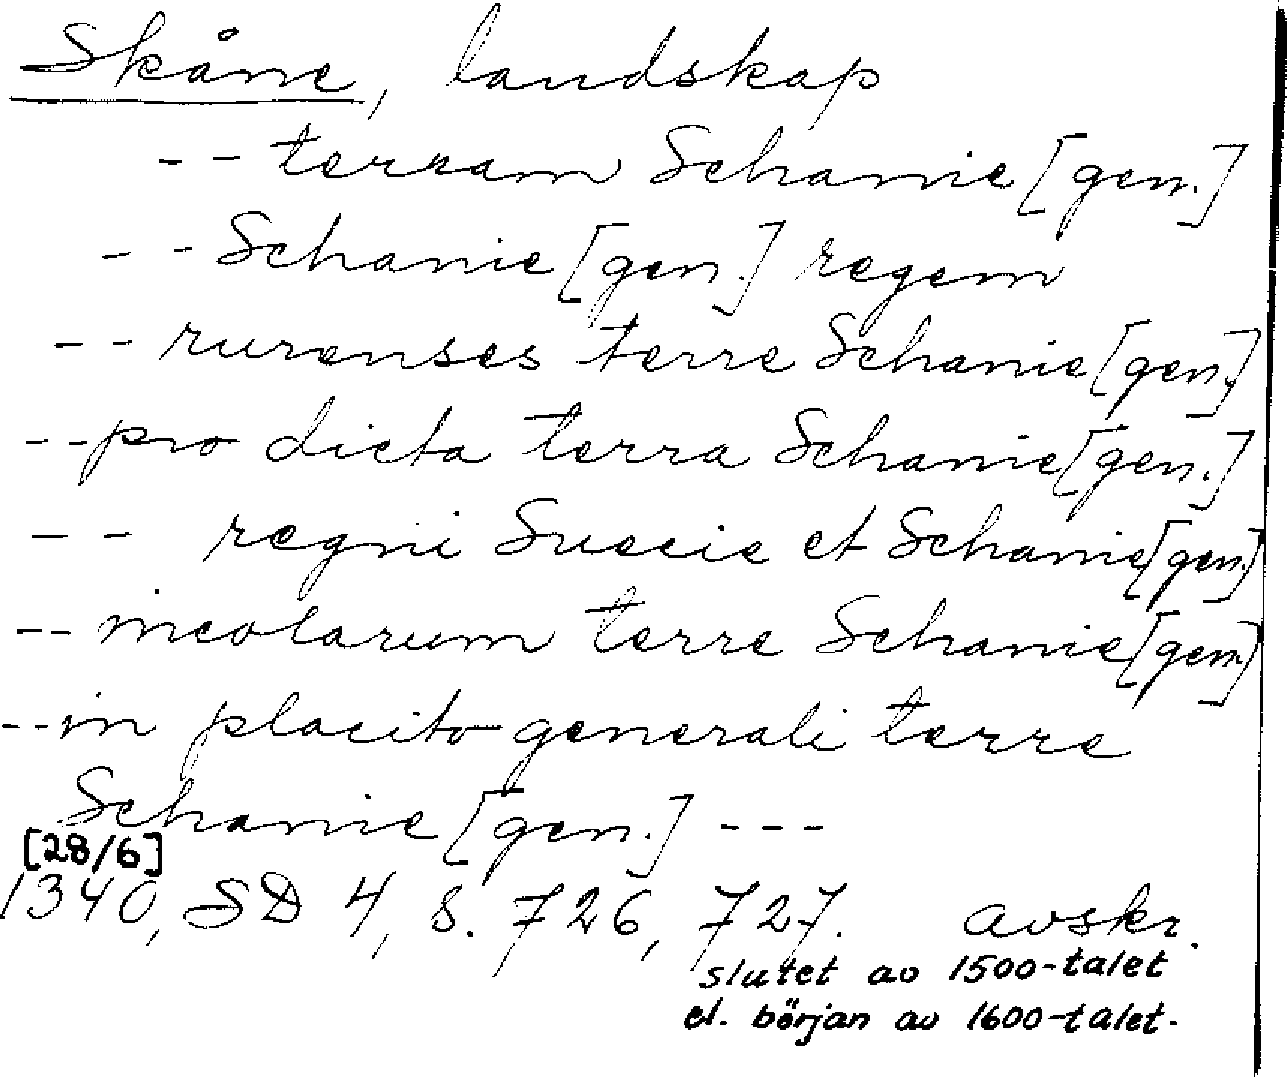 Skåne, landskap
-- terram Schanie [gen.]
-- Schanie [gen.] regem
-- rurenses terre Schanie [gen.]
-- pro dicta terra Schanie [gen.]
-- regni Suecie et Schanie [gen.]
-- incolarum terre Schanie [gen.]
-- in placito generali terre
Schanie [gen.] ---
[28/6]
1340, SD 4, s. 726, 727. avskr.
slutet av 1500-talet
el. början av 1600-talet.